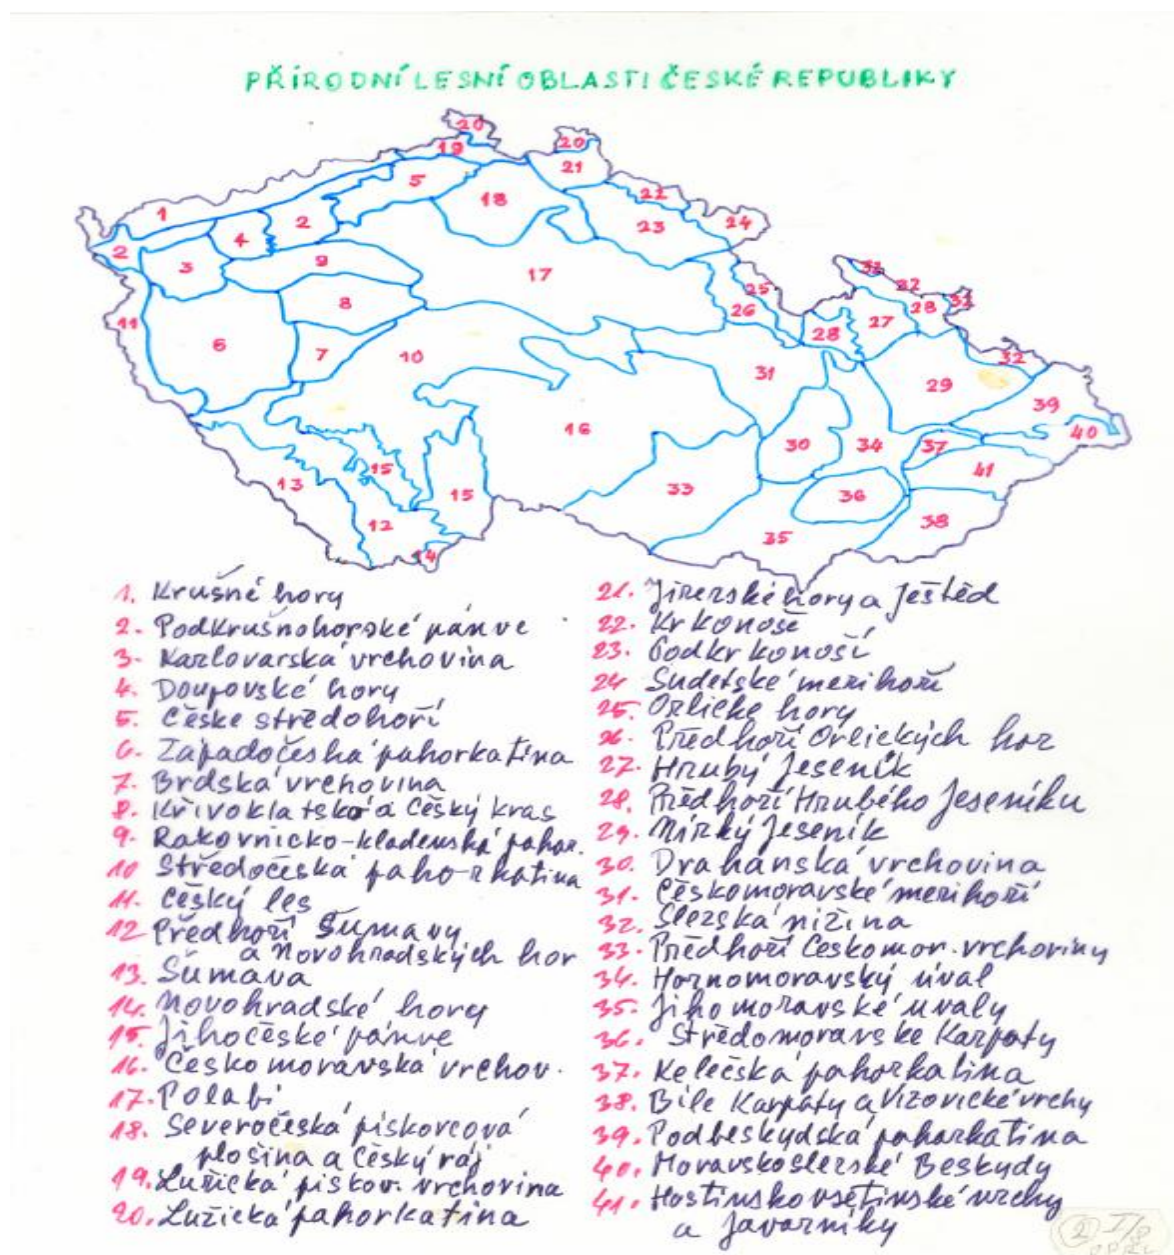 PŘÍRODNÍ LESNÍ OBLASTI ČESKÉ REPUBLIKY
20
20
19
21
5
22
1
18
2
23
24
4
2
9
3
17
32
25
22
8
26
28
32
11
27
6
28
7
10
32
31
29
39
16
30
34
37
40
15
13
41
33
15
36
12
38
35
14
1. Krušné hory
2. Podkrušnohorské pánve
3. Karlovarská vrchovina
4. Doupovské hory
5. České středohoří
6. Západočeská pahorkatina
7. Brdská vrchovina
8. Křivoklatsko a Český kras
9. Rakovnicko-kladenská pahor.
10 Středočeská paho-rkatina
11. Český les
12 Předhoří Šumavy
a Novohradských hor
13. Šumava
14. Novohradské hory
15. Jihočeské pánve
16. Česko moravská vrchov.
17. Polabí
18. Severočeská pískovcová
plošina a Český ráj
19. Lužická pískov. vrchovina
20. Lužická pahorkatina
21. Jizerské hory a Ještěd
22. Krkonoše
23. Podkrkonoší
24 Sudetské mezihoří
25. Orlické hory
26. Předhoří Orlických hor
27. Hrubý Jeseník
28. Předhoří Hrubého Jeseníku
29. Nízký Jeseník
30. Drahanská vrchovina
31. Českomoravské mezihoří
32. Slezská nížina
33. Předhoří Českomor. vrchoviny
34. Hornomoravský úval
35. Jihomoravské úvaly
36. Středomoravske Karpaty
37. Kelečská pahorkatina
38. Bílé Karpaty a Vizovické vrchy
39. Podbeskydská pahorkatina
40. Moravskoslezské Beskydy
41. Hostinskovsetinské vrchy
a Javorníky
2